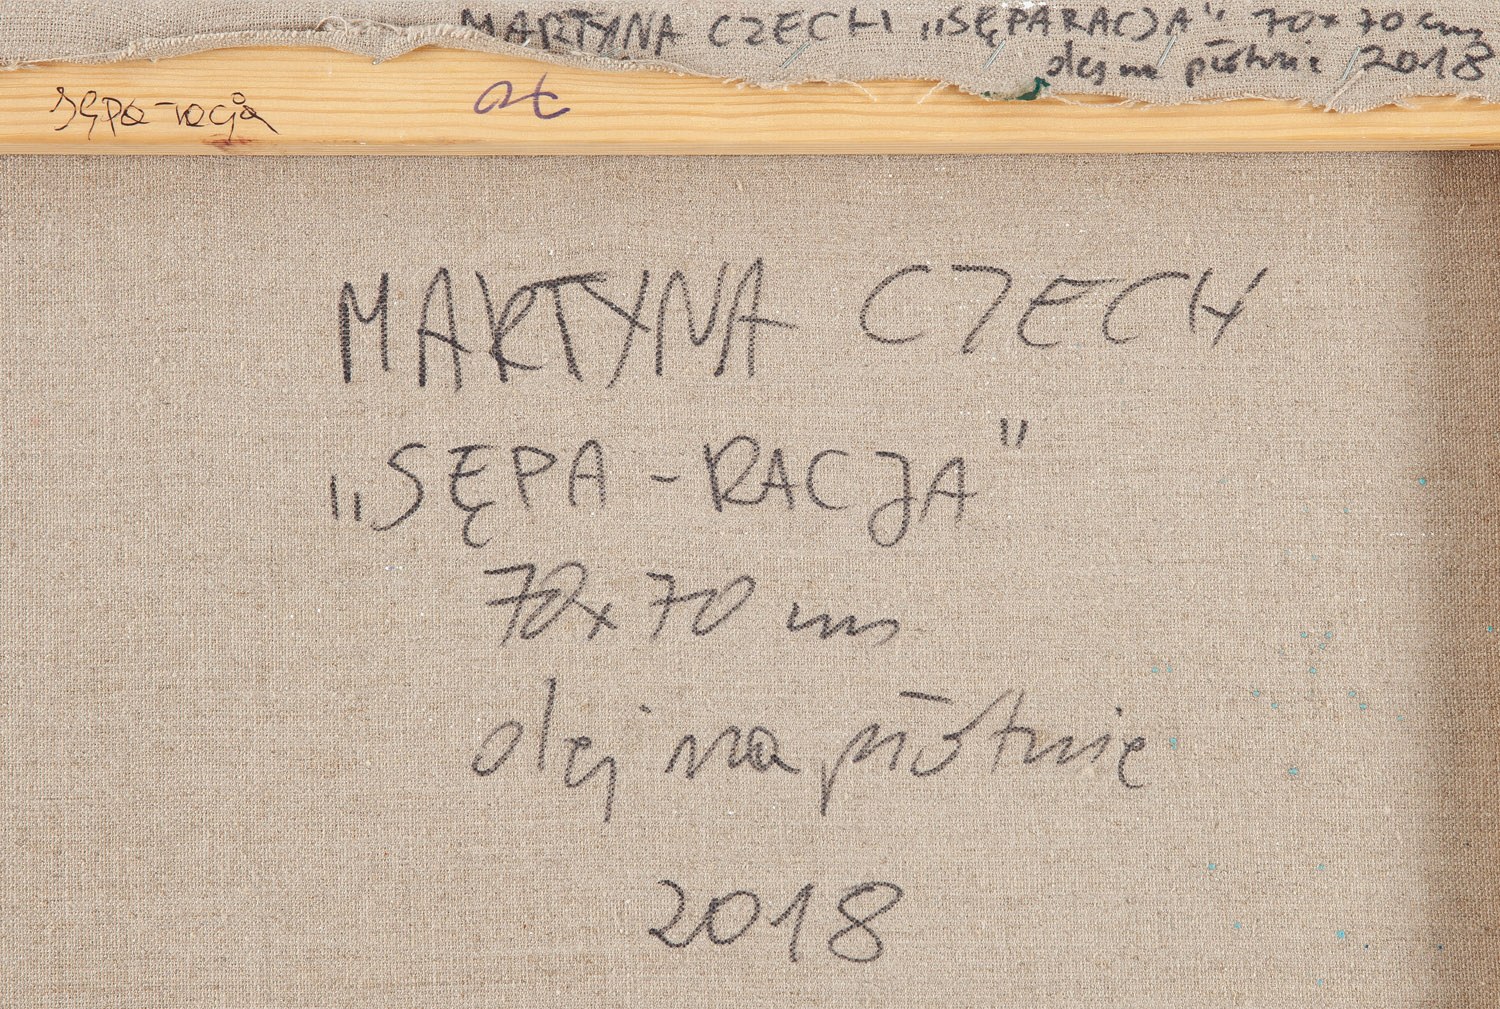 MARTYNA CZECH „SĘPARACJA" 70x70cm
olej na płótnie 2018
Sępa-racja
MARTYNA CZECH
„SĘPA-RACJA"
70x70 cm
olej na płótnie
2018